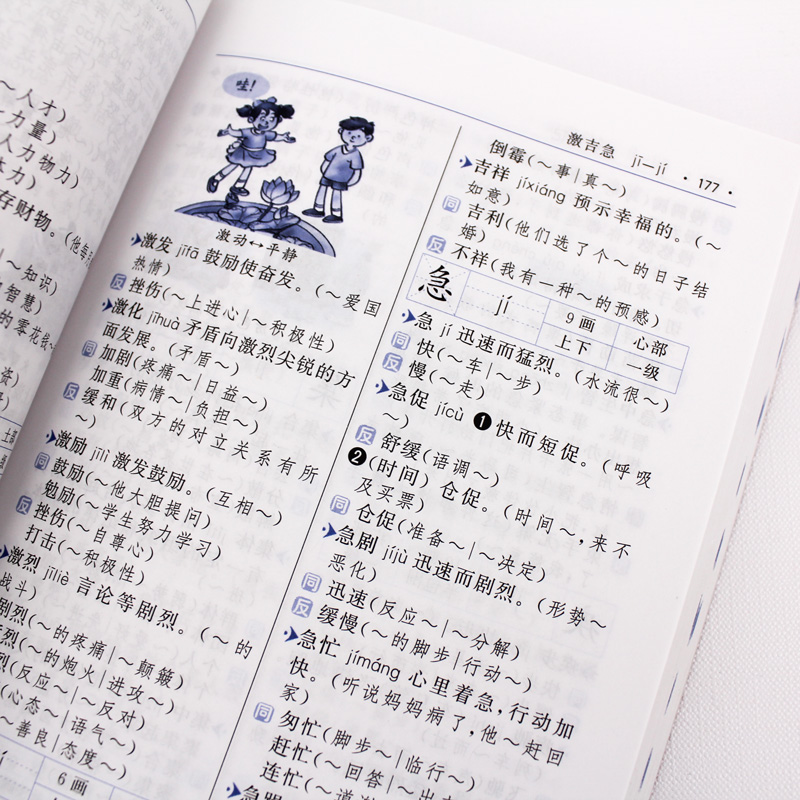 ～人才)
～力量)
人力物力)
体力)
存财物。(他每月
～知识)
智慧)
的零花钱～
激吉急 jī—jí ·177·
哇!
激动↔平静
激发 jīfā 鼓励使奋发。(～爱国
热情)
反 挫伤(～上进心|～积极性)
激化 jīhuà 矛盾向激烈尖锐的方
面发展。(矛盾～)
同 加剧(疼痛～|日益～)
加重(病情～|负担～)
反 缓和(双方的对立关系有所
～)
激励 jīlì 激发鼓励。(互相～)
同 鼓励(～他大胆提问)
勉励(～学生努力学习)
反 挫伤(～自尊心)
打击(～积极性)
激烈 jīliè 言论等剧烈。(～的
战斗)
剧烈(～的疼痛|～颠簸)
烈(～的炮火|进攻～)
烈(反应～|～反对)
(心态～|语气～)
～善良|态度～)
6画
倒霉(～事|真～)
吉祥 jíxiáng 预示幸福的。(～
如意)
同 吉利(他们选了个～的日子结
婚)
反 不祥(我有一种～的预感)
急 jí 9画 心部
上下 一级
急 jí 迅速而猛烈。(水流很～)
同 快(～车|～步)
反 慢(～走)
急促 jícù ❶快而短促。(呼吸
～)
反 舒缓(语调～)
❷(时间)仓促。(时间～,来不
及买票)
同 仓促(准备～|～决定)
急剧 jíjù 迅速而剧烈。(形势～
恶化)
同 迅速(反应～|～分解)
反 缓慢(～的脚步|行动～)
急忙 jímáng 心里着急,行动加
快。(听说妈妈病了,他～赶回
家)
同 匆忙(脚步～|临行～)
赶忙(～回答|～出
连忙(～道